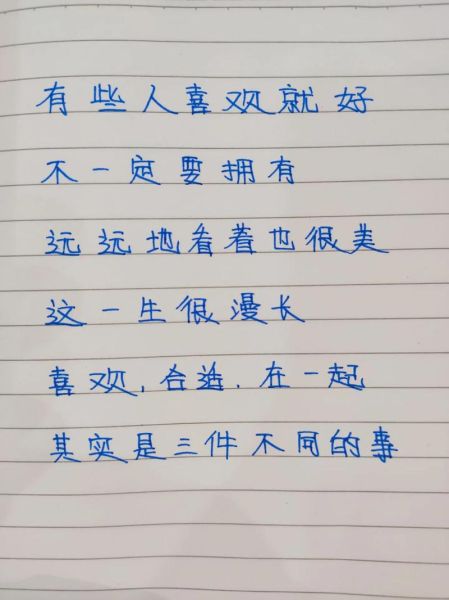 有些人喜欢就好
不一定要拥有
远远地看着也很美
这一生很漫长
喜欢,合适.在一起
其实是三件不同的事